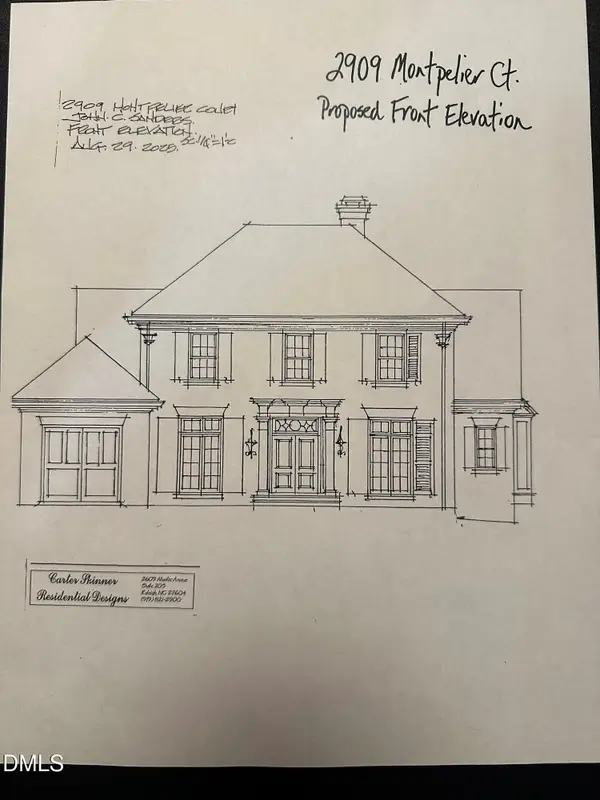 2909 Montpelier Ct.
Proposed Front Elevation
2909 MONTPELIER COURT
JOHN C. SANDERS.
FRONT ELEVATION.
AUG. 29. 2025.
Carter Skinner
Residential Designs
Suite 205
Raleigh, NC 27604
DMLS